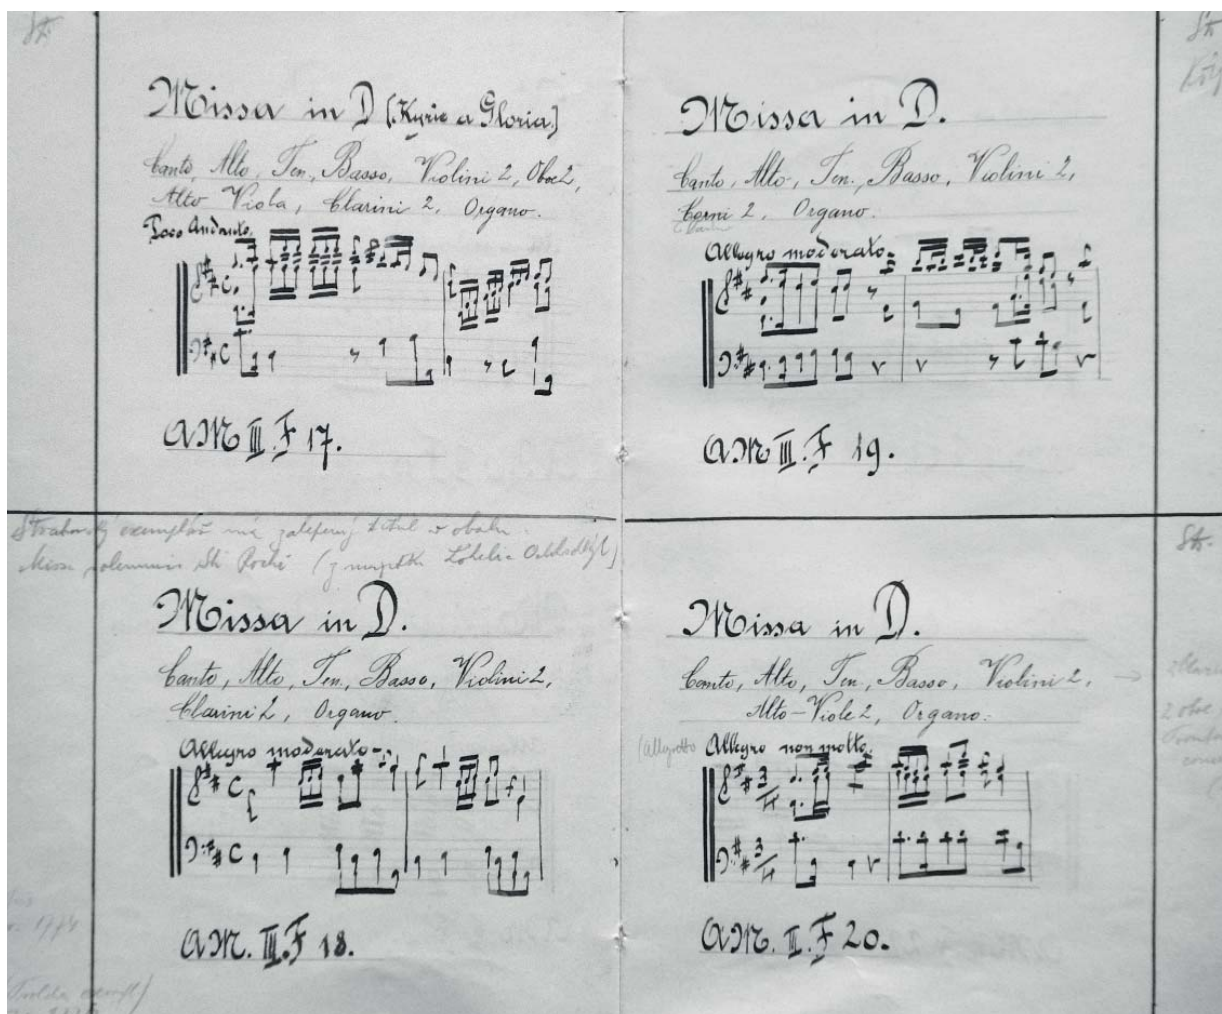 Missa in D (Kyrie a Gloria.)
Canto, Alto, Ten., Basso, Violini 2, Oboe 2,
Alto Viola, Clarini 2, Organo.
Poco Andante.
AM II.F 17.
Missa in D.
Canto, Alto, Ten., Basso, Violini 2,
Corni 2, Organo.
Allegro moderato.
AM II.F 19.
Strahovský exemplář má zalepený titul v obalu.
Missa solemnis Sti Rochi
Missa in D.
Canto, Alto, Ten., Basso, Violini 2,
Clarini 2, Organo.
Allegro moderato.
AM. II.F 18.
1774
Missa in D.
Canto, Alto, Ten., Basso, Violini 2,
Alto-Viole 2, Organo.
(Allegretto Allegro non molto.
AM. II.F 20.
Str.
2 oboe